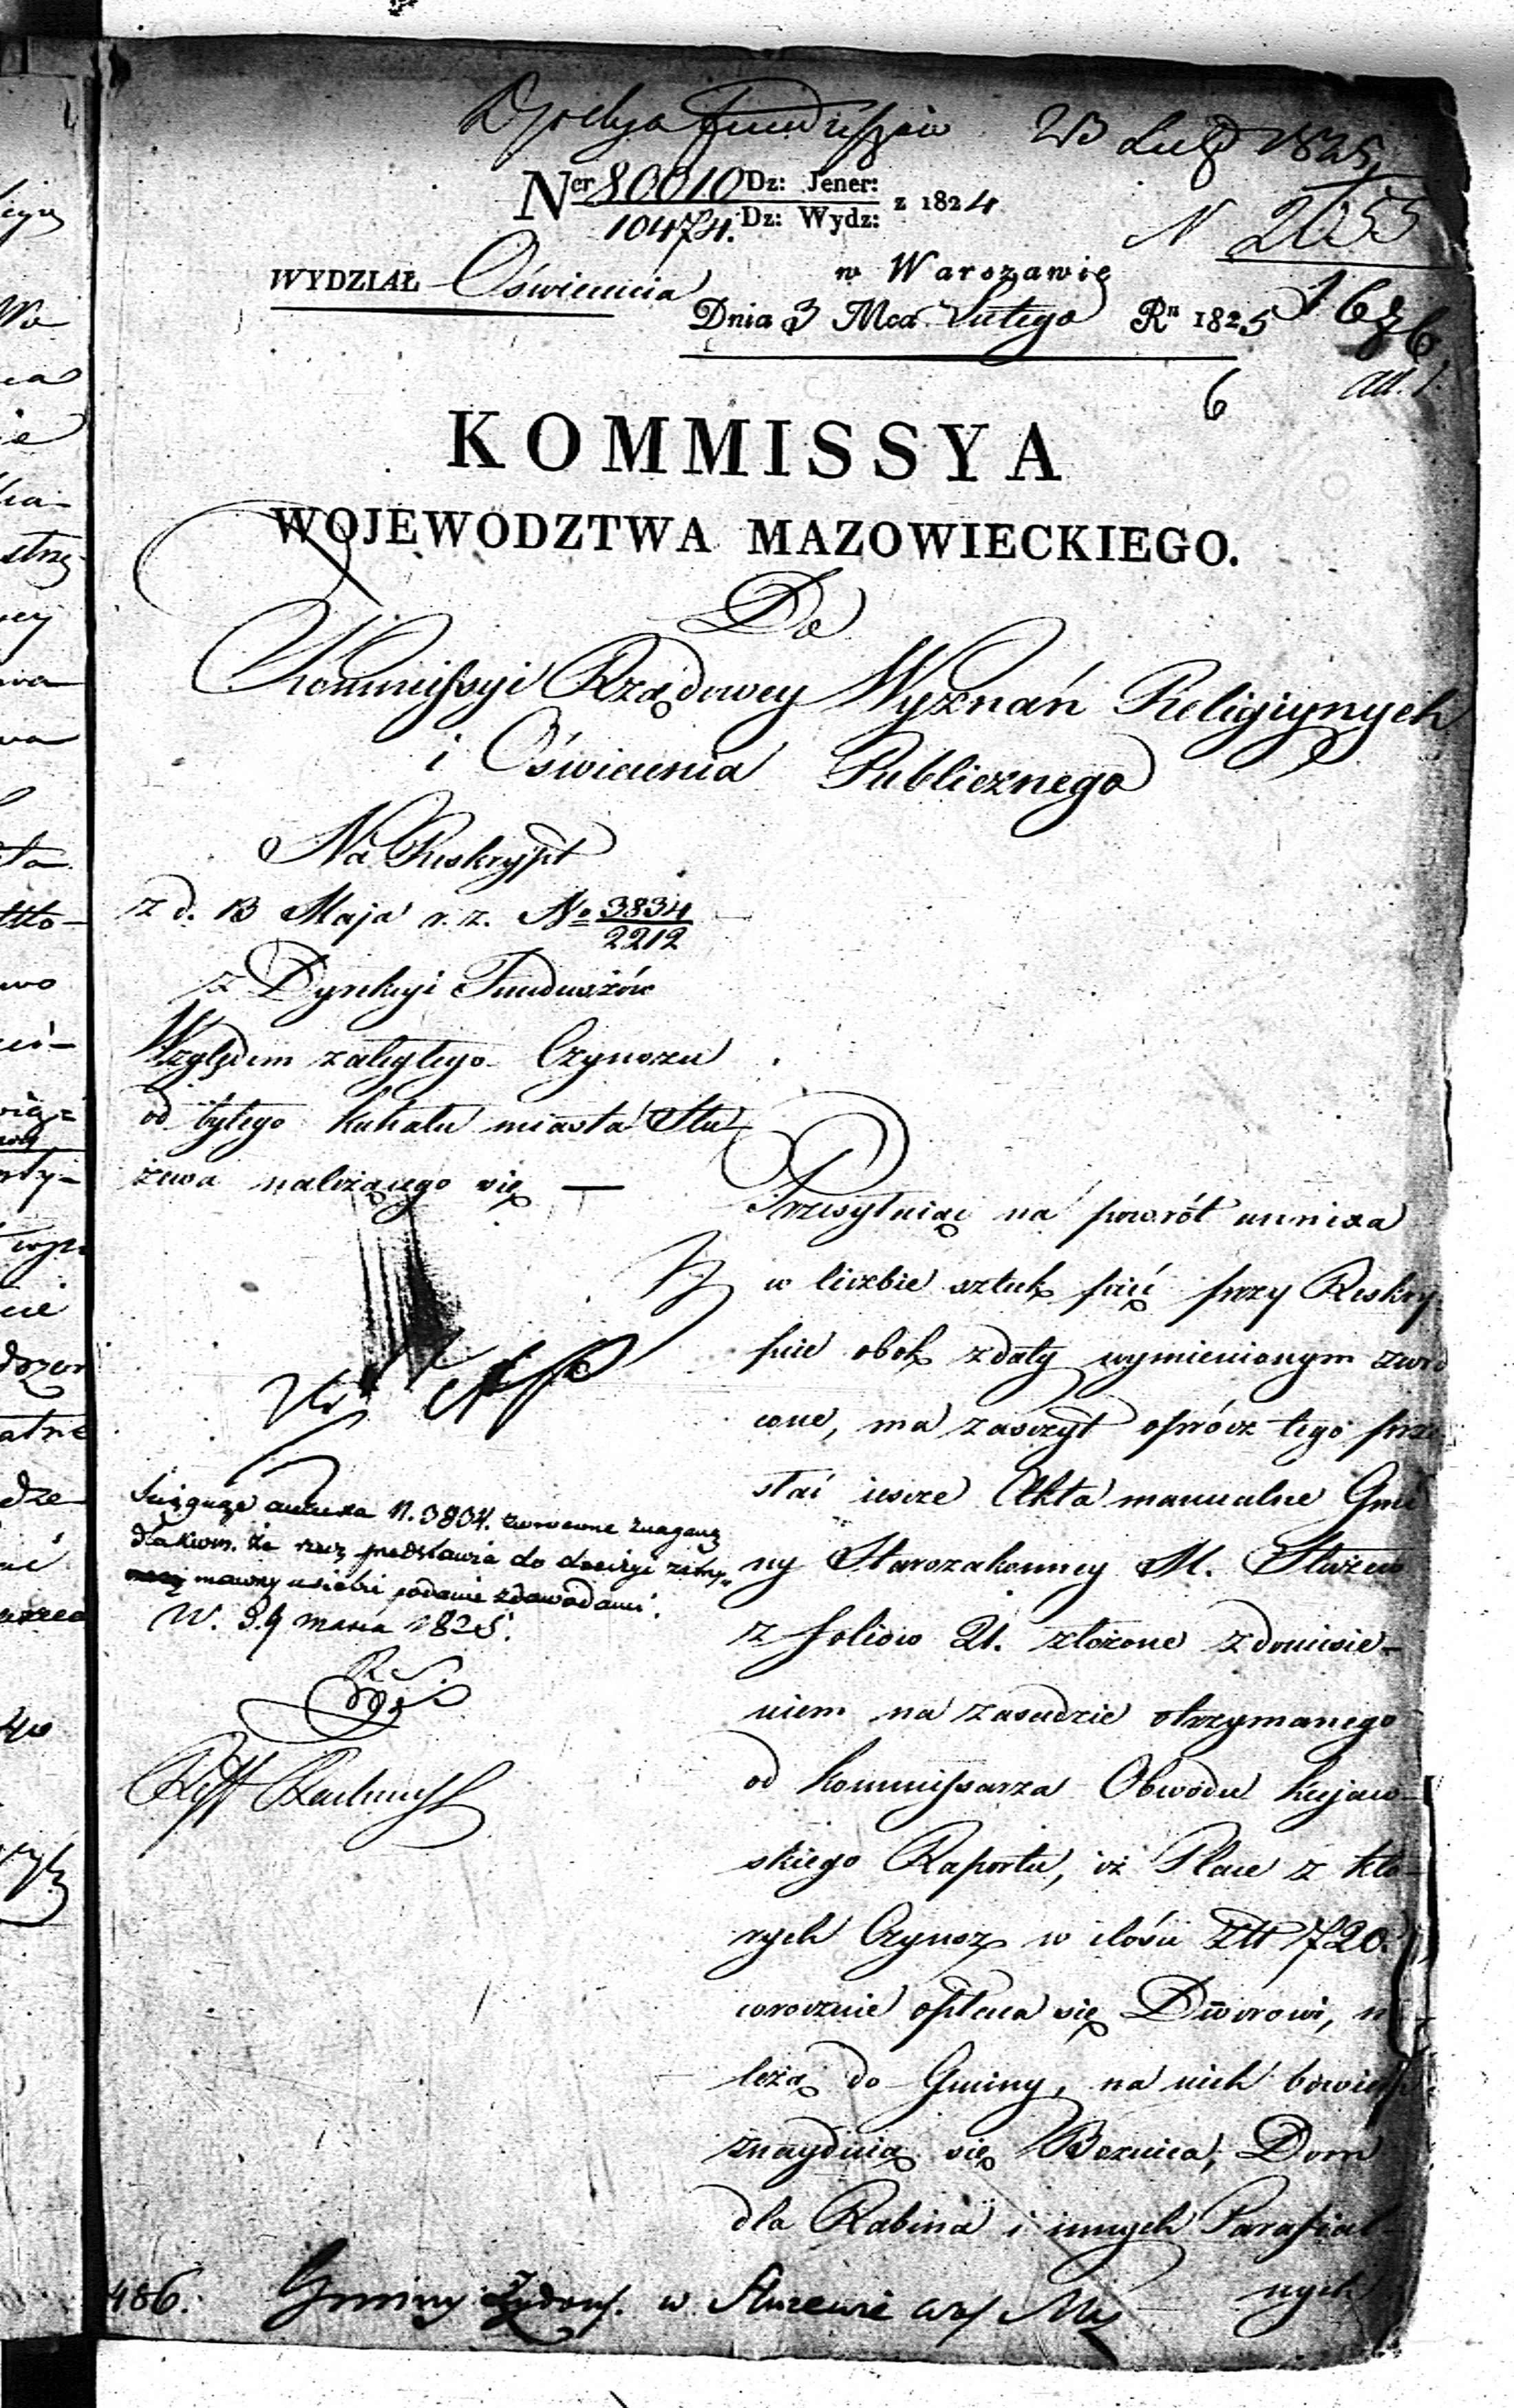 Dyrekcya Funduszów 23 Lut 1825
Ner 80010 Dz: Jener: z 1824
10474. Dz: Wydz:
N 2653
1686
ad. 1
WYDZIAŁ Oświecenia
w Warszawie
Dnia 3 Mca Lutego Ru 1825
6
KOMMISSYA
WOJEWODZTWA MAZOWIECKIEGO.
Do
Kommissyi Rządowey Wyznań Religiynych
i Oświecenia Publicznego
Na Reskrypt
z d. 13 Maja r. z. No 3834
2212
z Dyrekcyi Funduszów
Względem zaległego Czynszu
od tytego Kahału miasta Słu
żewa należącego się —
Przesyłaiąc na powrót annexa
w liczbie sztuk pięć przy Reskry
pcie obok z daty wymienionym zwró
cone, ma zaszczyt oprócz tego prze
słać ieszcze Akta manualne Gmi
ny Starozakonney M. Służewa
z foliów 21. złożone z doniesie-
niem na zasadzie otrzymanego
od Kommissarza Obwodu Kujaw-
skiego Raportu, iż Place z któ-
rych Czynsz w ilości Złł 720.
corocznie opłaca się Dworowi, n
leżą do Gminy, na nich bowiem
znayduią się Boznica, Dom
dla Rabina i innych Parafial
nych
annexa N. 3834. zwrócone
Kom. że rzecz przedstawia do decyzji
podanie z dowodami.
W. d. 9 Marca 1825.
486. Gminy Żydows. w Służewie